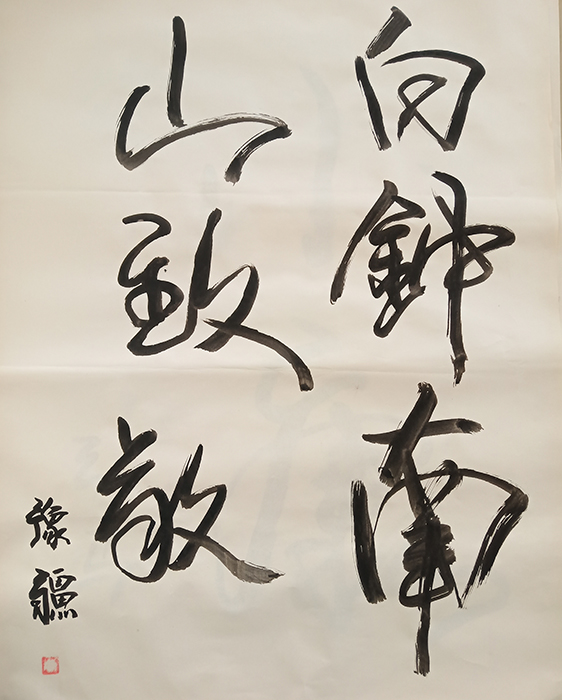 向钟南
山致敬
豫疆